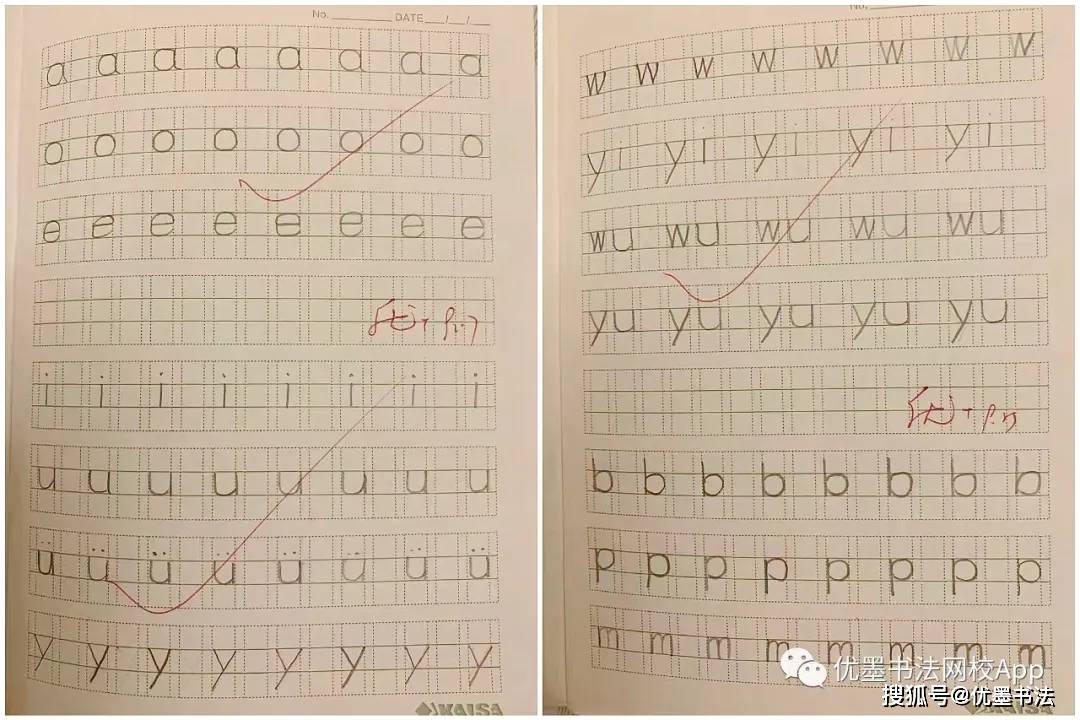 No. DATE / /
a a a a a a a a
o o o o o o o o
e e e e e e e e
i i i i i i i i
u u u u u u u u
ü ü ü ü ü ü ü ü
y y y y y y y y
KAISA
No.
w w w w w w w w
yi yi yi yi yi
wu wu wu wu wu
yu yu yu yu yu
b b b b b b b b
p p p p p p p p
m m m m m m m m
优墨书法网校App
搜狐号@优墨书法